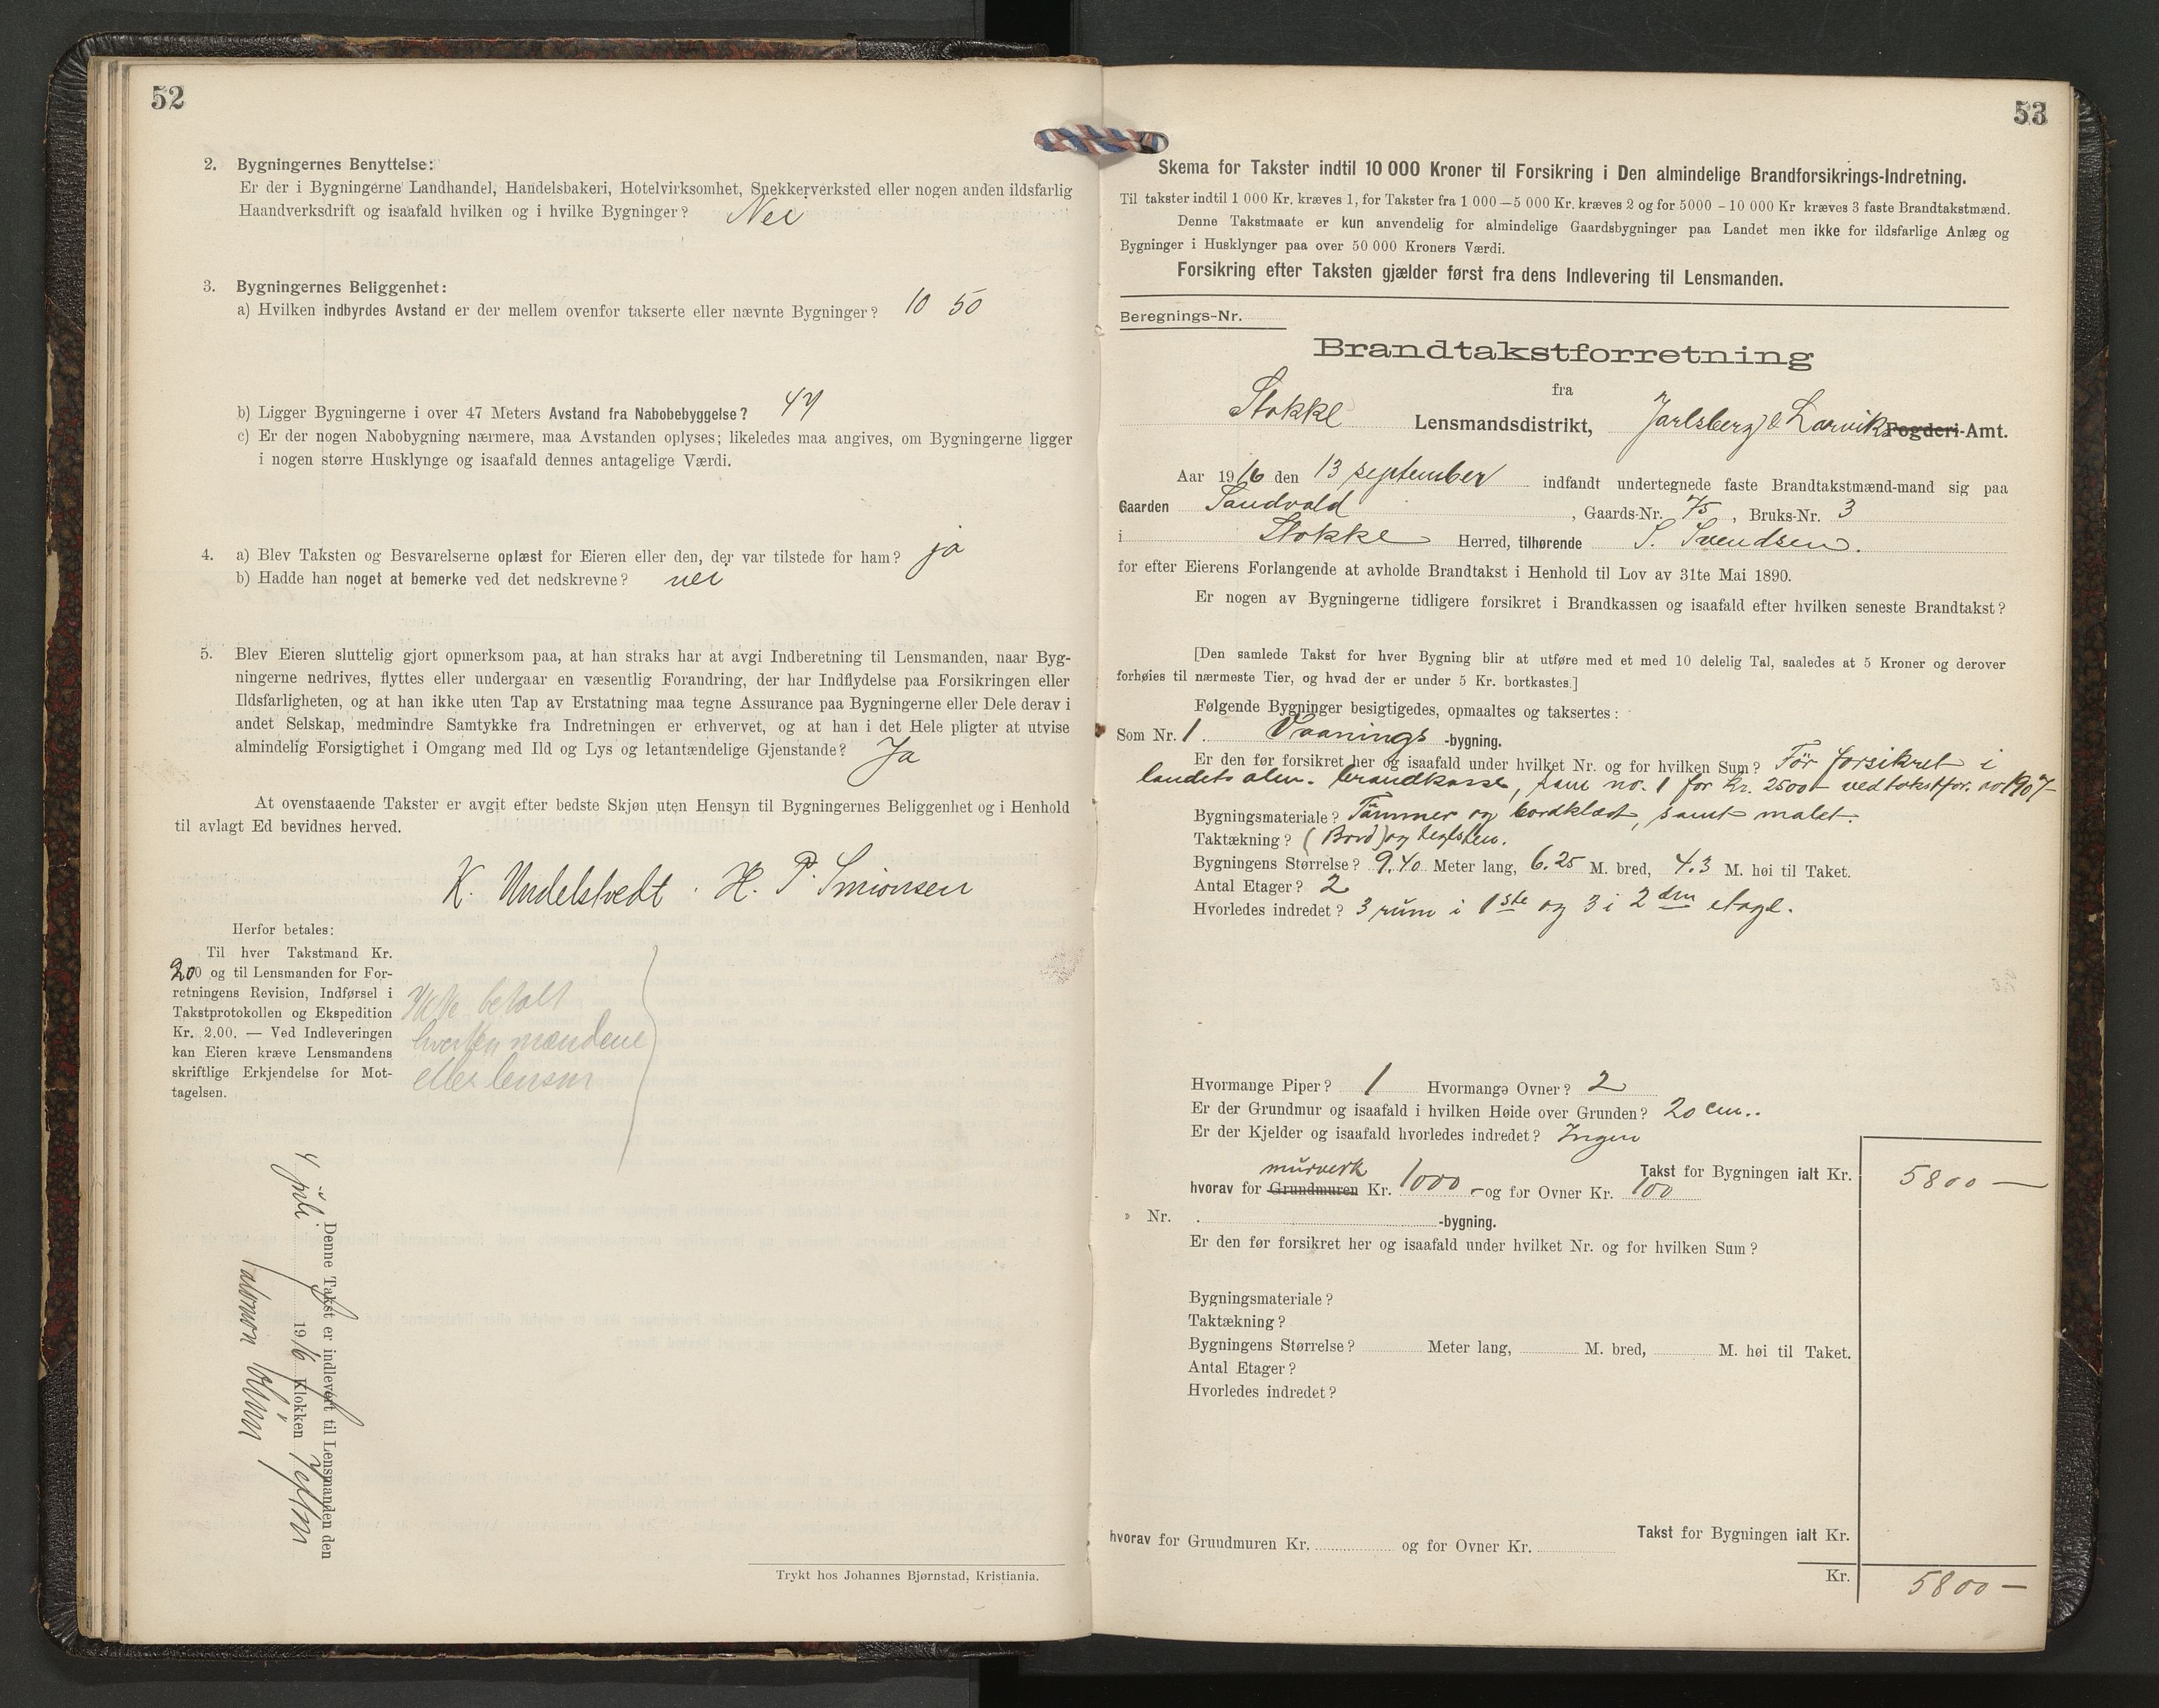 52
2. Bygningernes Benyttelse:
Er der i Bygningerne Landhandel, Handelsbakeri, Hotelvirksomhet, Snekkerverksted eller nogen anden ildsfarlig
Haandverksdrift og isaafald hvilken og i hvilke Bygninger? Nei
3. Bygningernes Beliggenhet:
a) Hvilken indbyrdes Avstand er der mellem ovenfor takserte eller nævnte Bygninger? 10 50
b) Ligger Bygningerne i over 47 Meters Avstand fra Nabobebyggelse? 47
c) Er der nogen Nabobygning nærmere, maa Avstanden oplyses; likeledes maa angives, om Bygningerne ligger
i nogen større Husklynge og isaafald dennes antagelige Værdi.
4. a) Blev Taksten og Besvarelserne oplæst for Eieren eller den, der var tilstede for ham? ja
b) Hadde han noget at bemerke ved det nedskrevne? nei
5. Blev Eieren sluttelig gjort opmerksom paa, at han straks har at avgi Indberetning til Lensmanden, naar Byg-
ningerne nedrives, flyttes eller undergaar en væsentlig Forandring, der har Indflydelse paa Forsikringen eller
Ildsfarligheten, og at han ikke uten Tap av Erstatning maa tegne Assurance paa Bygningerne eller Dele derav i
andet Selskap, medmindre Samtykke fra Indretningen er erhvervet, og at han i det Hele pligter at utvise
almindelig Forsigtighet i Omgang med Ild og Lys og letantændelige Gjenstande? Ja
At ovenstaaende Takster er avgit efter bedste Skjøn uten Hensyn til Bygningernes Beliggenhet og i Henhold
til avlagt Ed bevidnes herved.
K. Undelstvedt. H. P. Simonsen
Herfor betales:
Til hver Takstmand Kr.
200 og til Lensmanden for For-
retningens Revision, Indførsel i
Takstprotokollen og Ekspedition
Kr. 2.00. — Ved Indleveringen
kan Eieren kræve Lensmandens
skriftlige Erkjendelse for Mot-
tagelsen.
Ikke betalt
hverken mændene
eller lensm
Denne Takst er indlevert til Lensmanden den
4 juli 1916 Klokken
Trykt hos Johannes Bjørnstad, Kristiania.
53
Skema for Takster indtil 10 000 Kroner til Forsikring i Den almindelige Brandforsikrings-Indretning.
Til takster indtil 1 000 Kr. kræves 1, for Takster fra 1 000—5 000 Kr. kræves 2 og for 5000 – 10 000 Kr kræves 3 faste Brandtakstmænd.
Denne Takstmaate er kun anvendelig for almindelige Gaardsbygninger paa Landet men ikke for ildsfarlige Anlæg og
Bygninger i Husklynger paa over 50 000 Kroners Værdi.
Forsikring efter Taksten gjælder først fra dens Indlevering til Lensmanden.
Beregnings-Nr.
Brandtakstforretning
fra
Stokke Lensmandsdistrikt, Jarlsberg & Larviks Fogderi-Amt.
Aar 1916 den 13 september indfandt undertegnede faste Brandtakstmænd-mand sig paa
Gaarden Sandvold, Gaards-Nr. 75, Bruks-Nr. 3
i Stokke Herred, tilhørende S. Svendsen.
for efter Eierens Forlangende at avholde Brandtakst i Henhold til Lov av 31te Mai 1890.
Er nogen av Bygningerne tidligere forsikret i Brandkassen og isaafald efter hvilken seneste Brandtakst?
[Den samlede Takst for hver Bygning blir at utføre med et med 10 delelig Tal, saaledes at 5 Kroner og derover
forhøies til nærmeste Tier, og hvad der er under 5 Kr. bortkastes.]
Følgende Bygninger besigtigedes, opmaaltes og taksertes:
Som Nr. 1 Vaanings -bygning.
Er den før forsikret her og isaafald under hvilket Nr. og for hvilken Sum? Før forsikret i
landets alm. brandkasse, som no. 1 for Kr. 2500- ved takstfor. av 1907-
Bygningsmateriale? Tømmer og bordklædt, samt malet.
Taktækning? (Bord) og teglsten.
Bygningens Størrelse? 9.40 Meter lang, 6.25 M. bred, 4.3 M. høi til Taket.
Antal Etager? 2
Hvorledes indredet? 3 rum i 1ste og 3 i 2den etage.
Hvormange Piper? 1 Hvormange Ovner? 2
Er der Grundmur og isaafald i hvilken Høide over Grunden? 20 cm..
Er der Kjelder og isaafald hvorledes indredet? Ingen
Takst for Bygningen ialt Kr. 5800 —
murverk
hvorav for Grundmuren Kr. 1000 - og for Ovner Kr. 100
» Nr. -bygning.
Er den før forsikret her og isaafald under hvilket Nr. og for hvilken Sum?
Bygningsmateriale?
Taktækning?
Bygningens Størrelse? Meter lang, M. bred, M. høi til Taket.
Antal Etager?
Hvorledes indredet?
Takst for Bygningen ialt Kr.
hvorav for Grundmuren Kr. og for Ovner Kr.
Kr. 5800 —